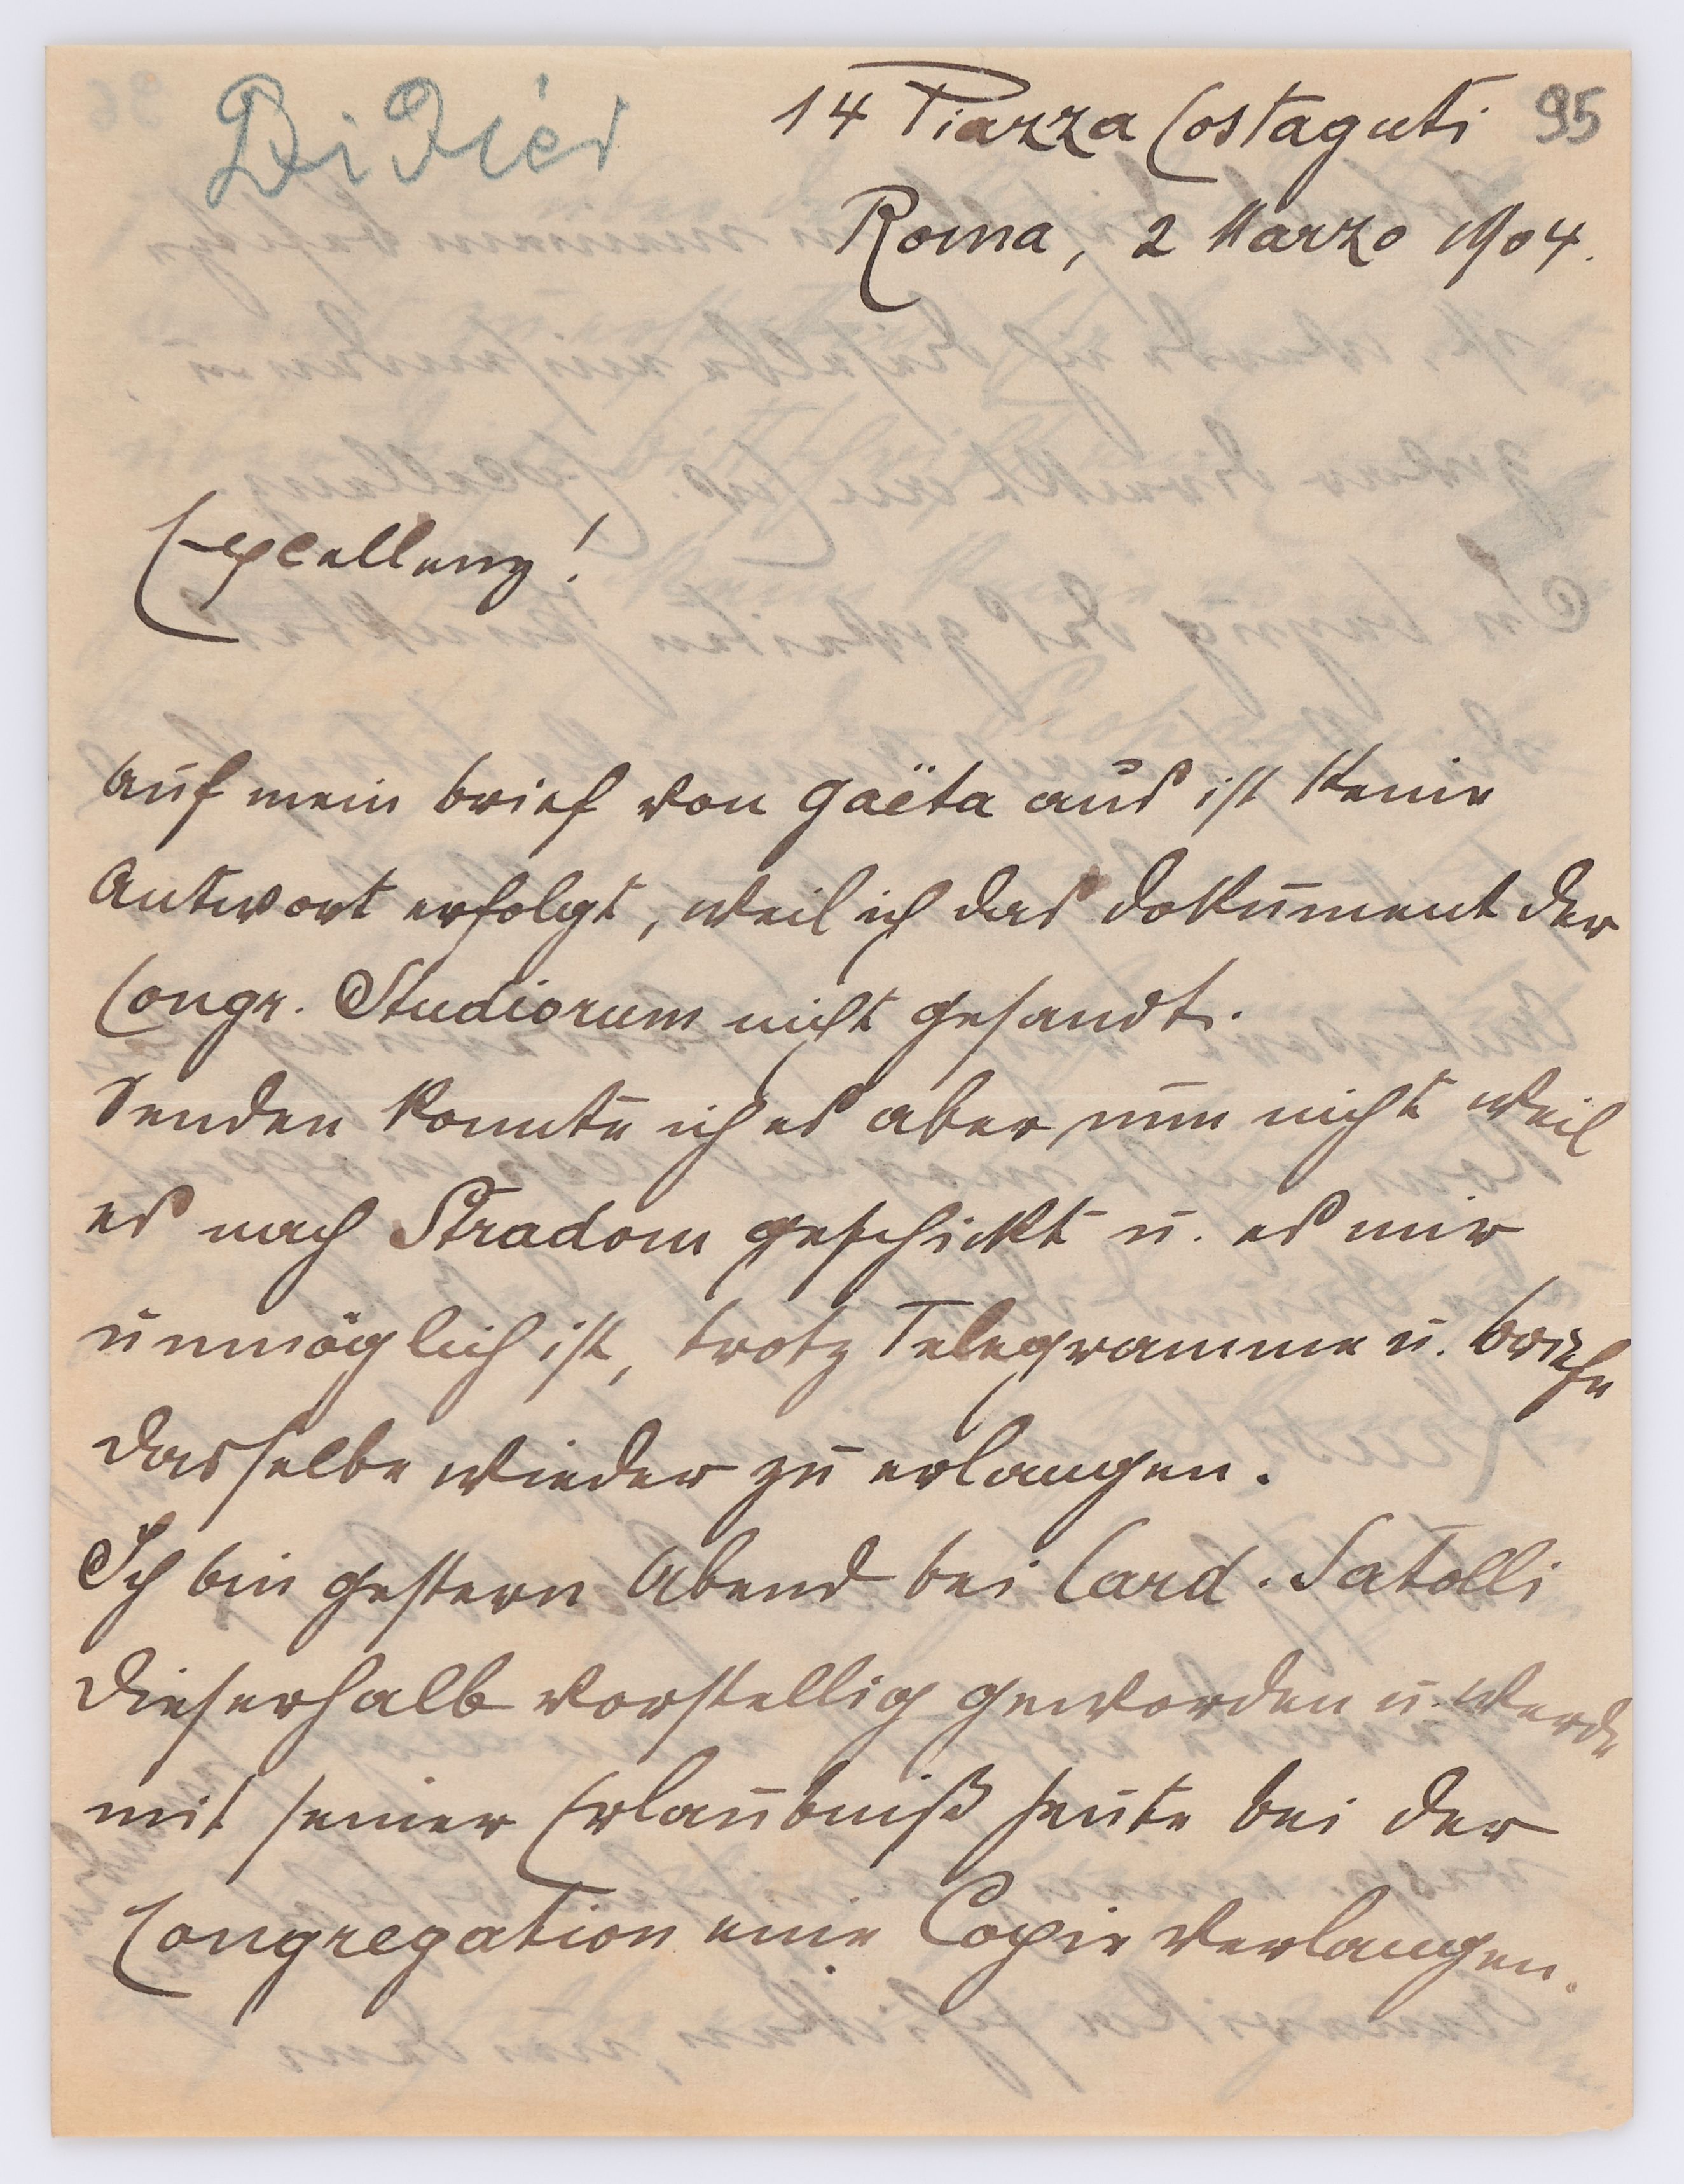 Didier
14 Piazza Costaguti 95
Roma, 2 Marzo 1904.
Excellenz!
Auf mein brief von Gaëta aus ist keine
Antwort erfolgt, weil ich das dokument der
Congr. Studiorum nicht gesandt.
Senden konnte ich es aber nun nicht weil
es nach Stradom geschickt u. es mir
unmöglich ist, trotz Telegramme u. briefe
dasselbe wieder zu erlangen.
Ich bin gestern Abend bei Card. Satolli
dieserhalb vorstellig geworden u. werde
mit seiner Erlaubniß heute bei der
Congregation eine Copie verlangen.